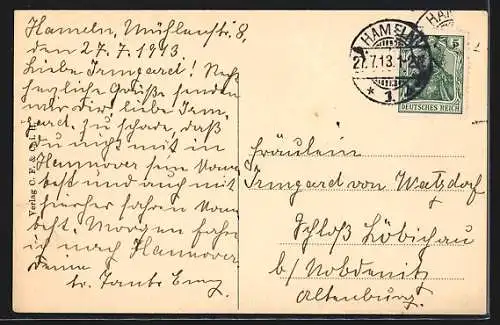 Hameln, Mühlenstr. 8,
den 27.7.1913
Liebe Irmgard!
herzliche Grüße senden
wir dir, liebe Irm-
gard. zu schade, daß
Du nicht mit in
Hannover sein
und auch mit
hierher fahren
Morgen fahre
ich nach Hannover.
Deine
Tante
Verlag C. F. &
HAMELN
27.7.13.
* 1.
HAM
5
DEUTSCHES REICH
Fräulein
Irmgard von Watzdorf
Schloß Löbichau
b/ Nobdenitz
Altenburg.